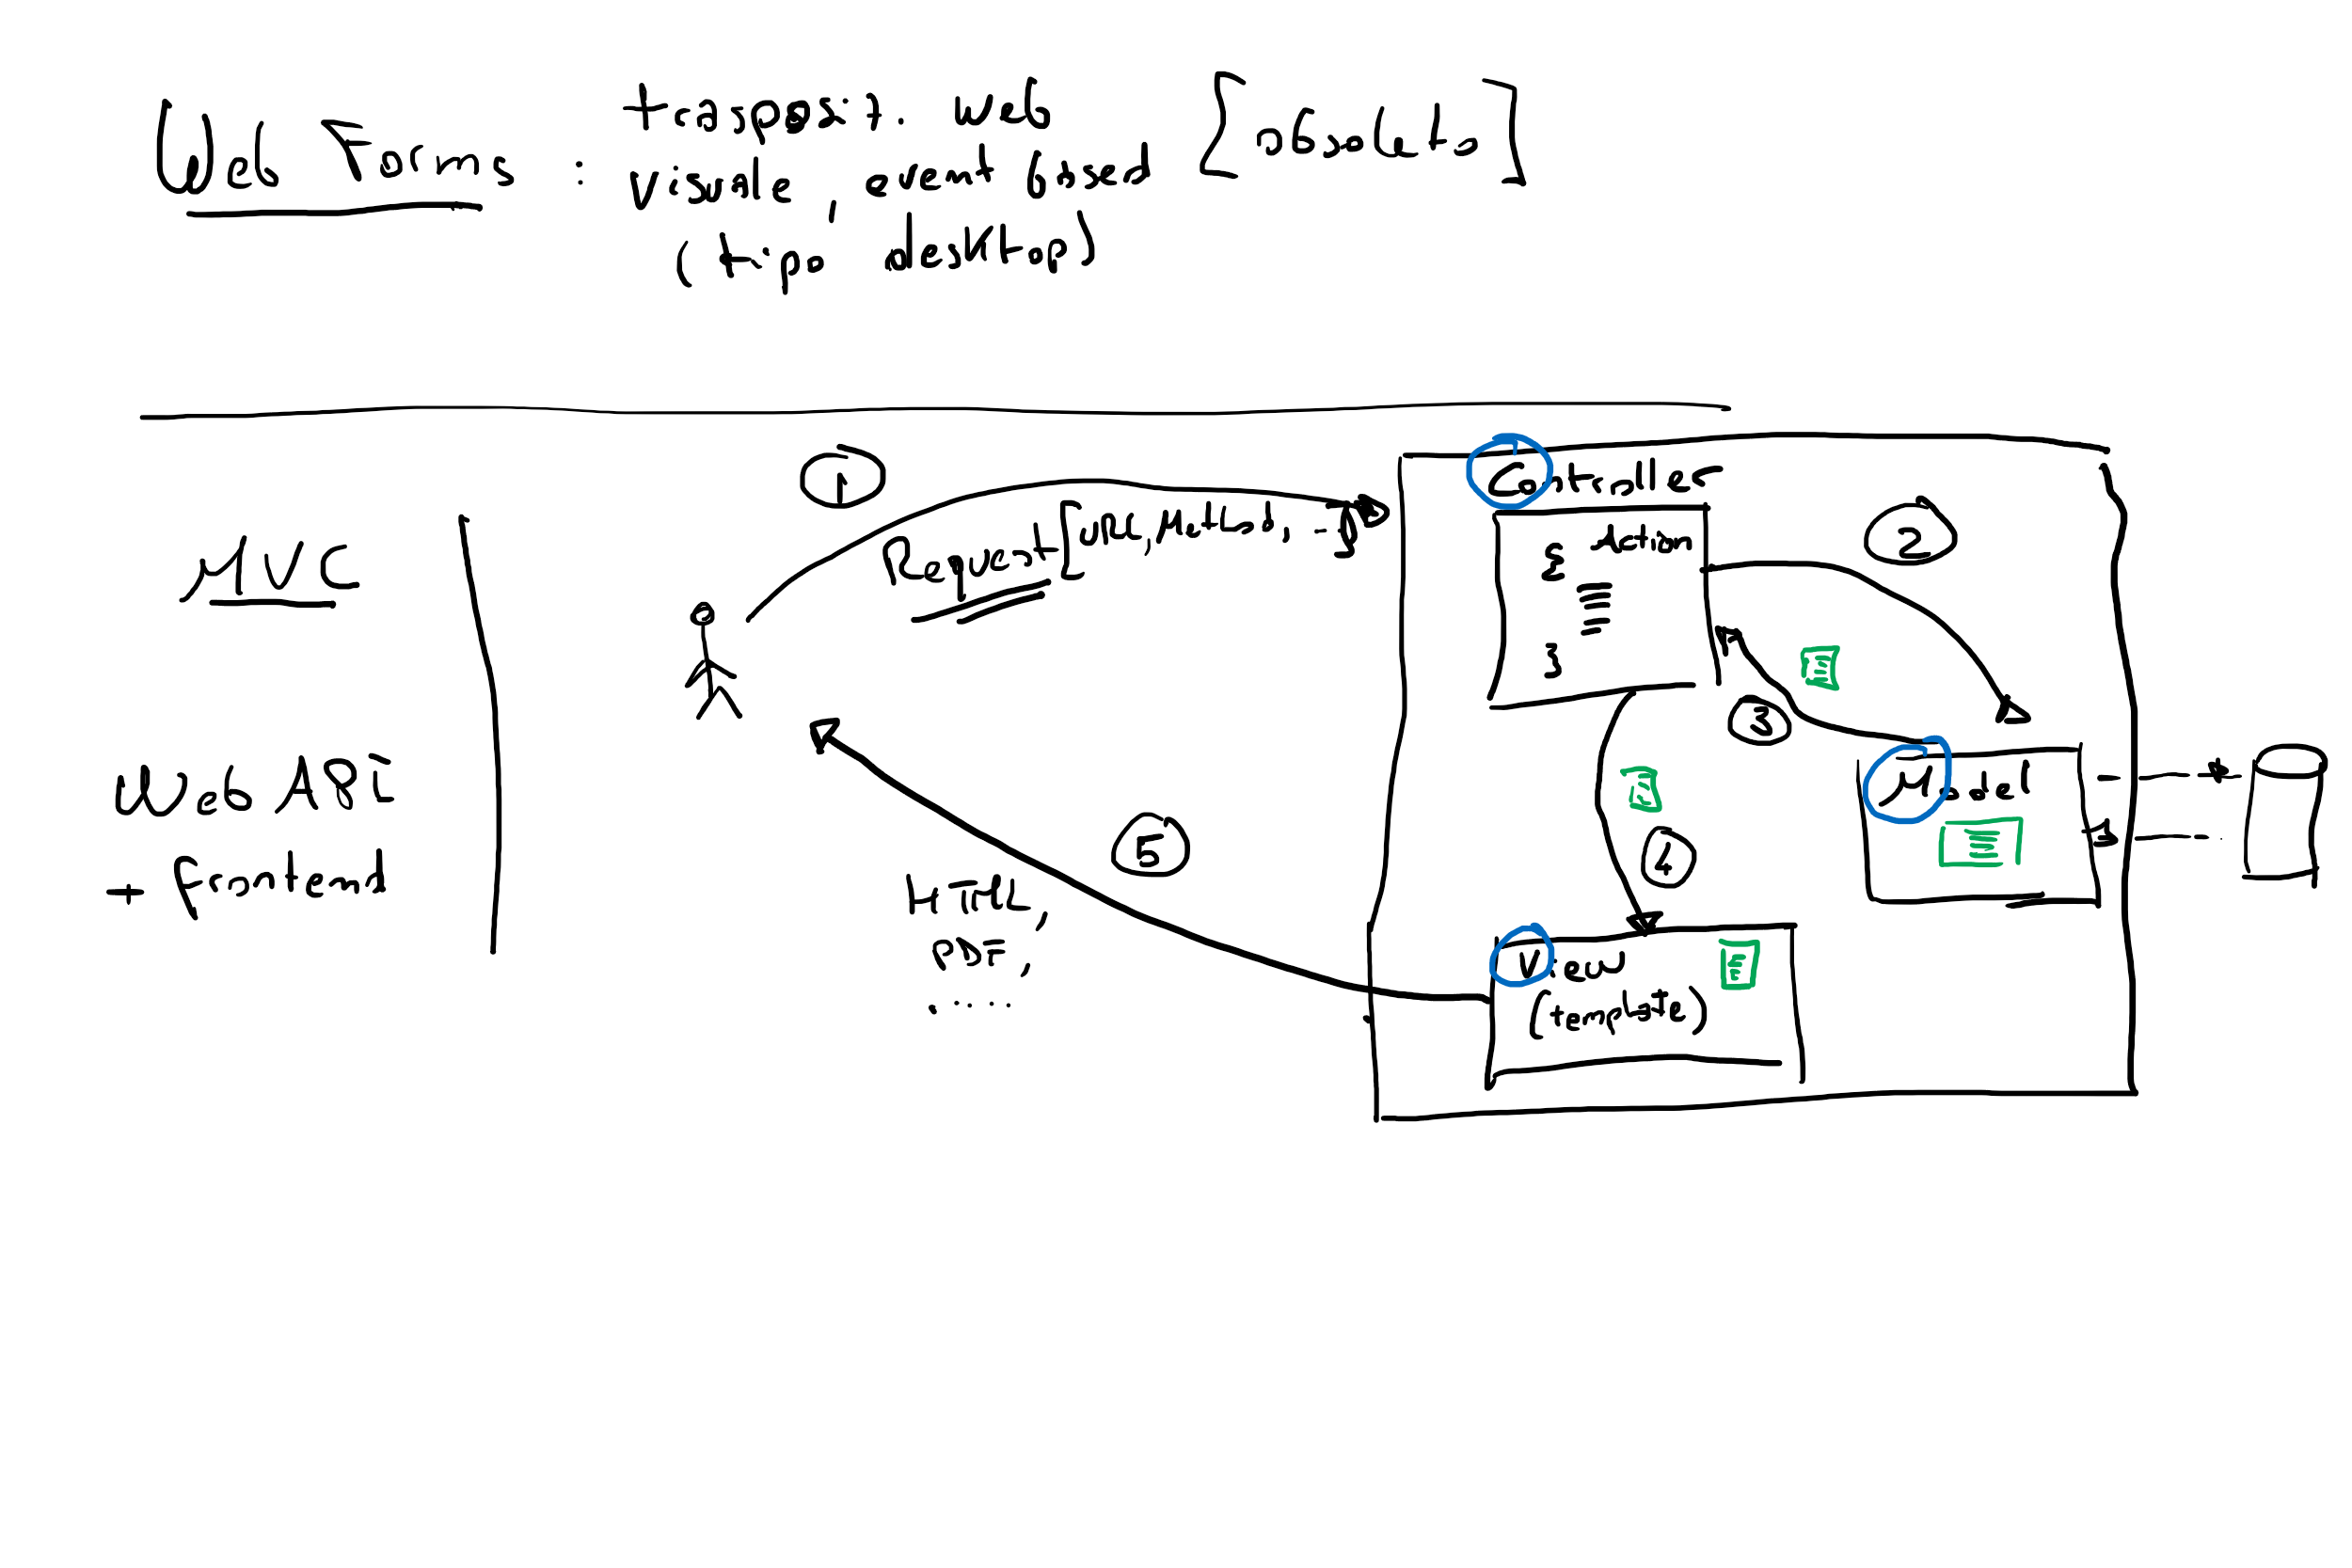 Web Forms :
trasposiz. web
visuale, event based
(tipo desktop)
[obsoleto]
MVC
Web API
+ frontend
1
Request [URL, Method, ...]
Controller
Action
{
}
2
3
Model
4
View
(template)
5
HTML,
PDF,
.....